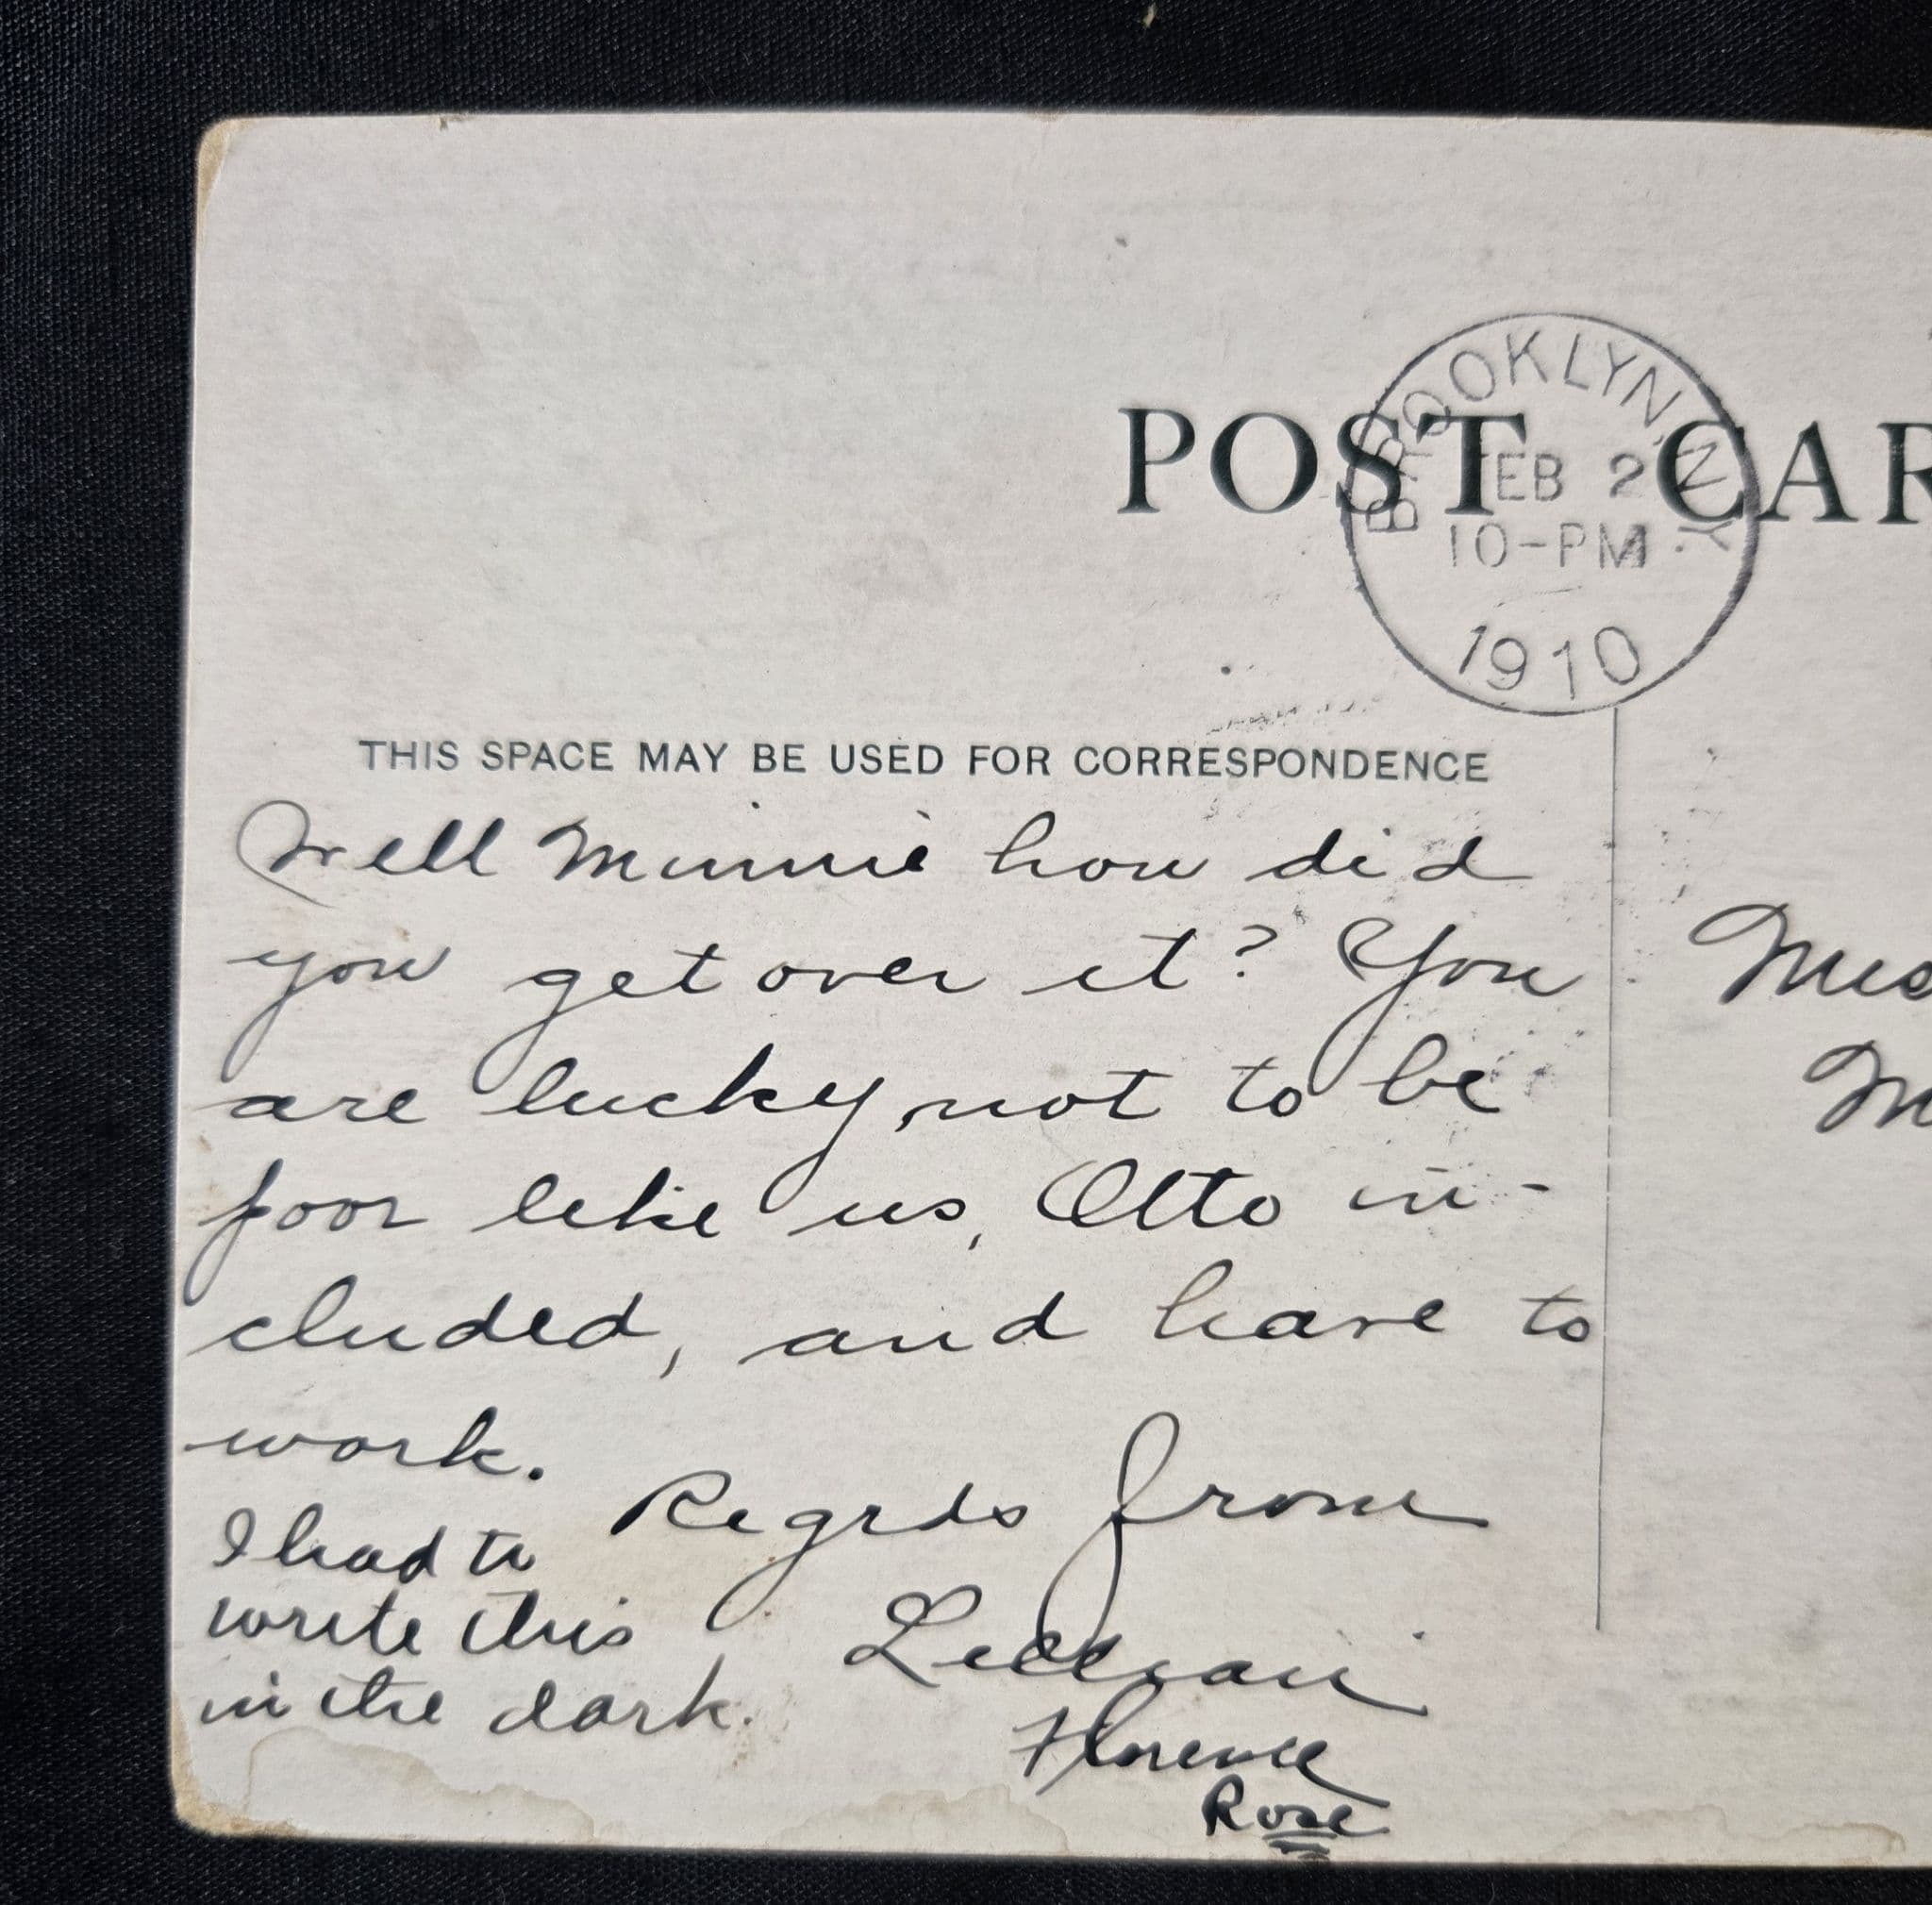 POST CAR
BROOKLYN, N.Y.
FEB 2
10-PM
1910
THIS SPACE MAY BE USED FOR CORRESPONDENCE
Well Minnie how did
you get over it? You
are lucky, not to be
poor like us, Otto in-
cluded, and have to
work.
Regrds from
Lillian
Florence
Rose
I had to
write this
in the dark.
Miss
M